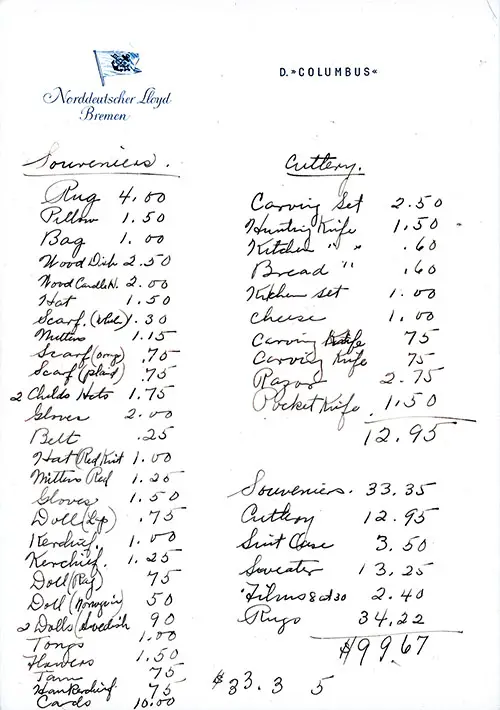 Norddeutscher Lloyd
Bremen
D. »COLUMBUS«
Souveniers.
Rug 4.00
Pillow 1.50
Bag 1.00
Wood Dish 2.50
Wood CandleH. 2.00
Hat 1.50
Scarf. (White) .30
Mittens 1.15
Scarf (orng) .75
Scarf (plaid) .75
2 Childs Hats 1.75
Gloves 2.00
Belt .25
Hat (Red Knit 1.00
Mittens Red 1.25
Gloves 1.50
Doll (Lg) .75
Kerchief. 1.00
Kerchief. 1.25
Doll (Rag) 75
Doll (Norwegian) 50
2 Dolls (Swedish 90
Tongs 1.00
Flowers 1.50
Tam 75
Hankerchief 75
Cards 10.00
$33.35
Cuttery.
Carving Set 2.50
Hunting Knife 1.50
Kitchen " " .60
Bread " .60
Kitchen set 1.00
Cheese 1.00
Carving Knife 75
Carving Knife 75
Razor 2.75
Pocket Knife 1.50
12.95
Souveniers. 33.35
Cuttery 12.95
Suit Case 3.50
Sweater 13.25
Films 8 at 30 2.40
Rugs 34.22
$99.67